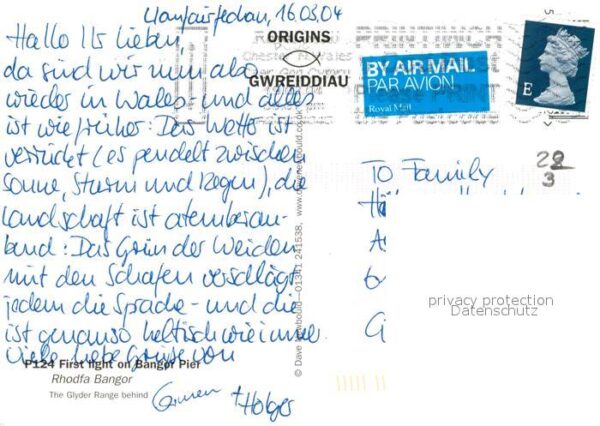 Llanfairfechan, 16.03.04
Hallo Ihr Lieben,
da sind wir nun also
wieder in Wales - und alles
ist wie früher: Das Wetter ist
verrückt (es pendelt zwischen
Sonne, Sturm und Regen), die
Landschaft ist atemberau-
bend: Das Grün der Weiden
mit den Schafen verschlägt
jedem die Sprache - und die
ist genauso keltisch wie immer.
Viele liebe Grüsse von
+ Holger
P124 First light on Bangor Pier
Rhodfa Bangor
The Glyder Range behind
© Dave Newbould - 01341 241538,
ORIGINS
GWREIDDIAU
BY AIR MAIL
PAR AVION
Royal Mail
E
28
3
To Family
privacy protection
Datenschutz